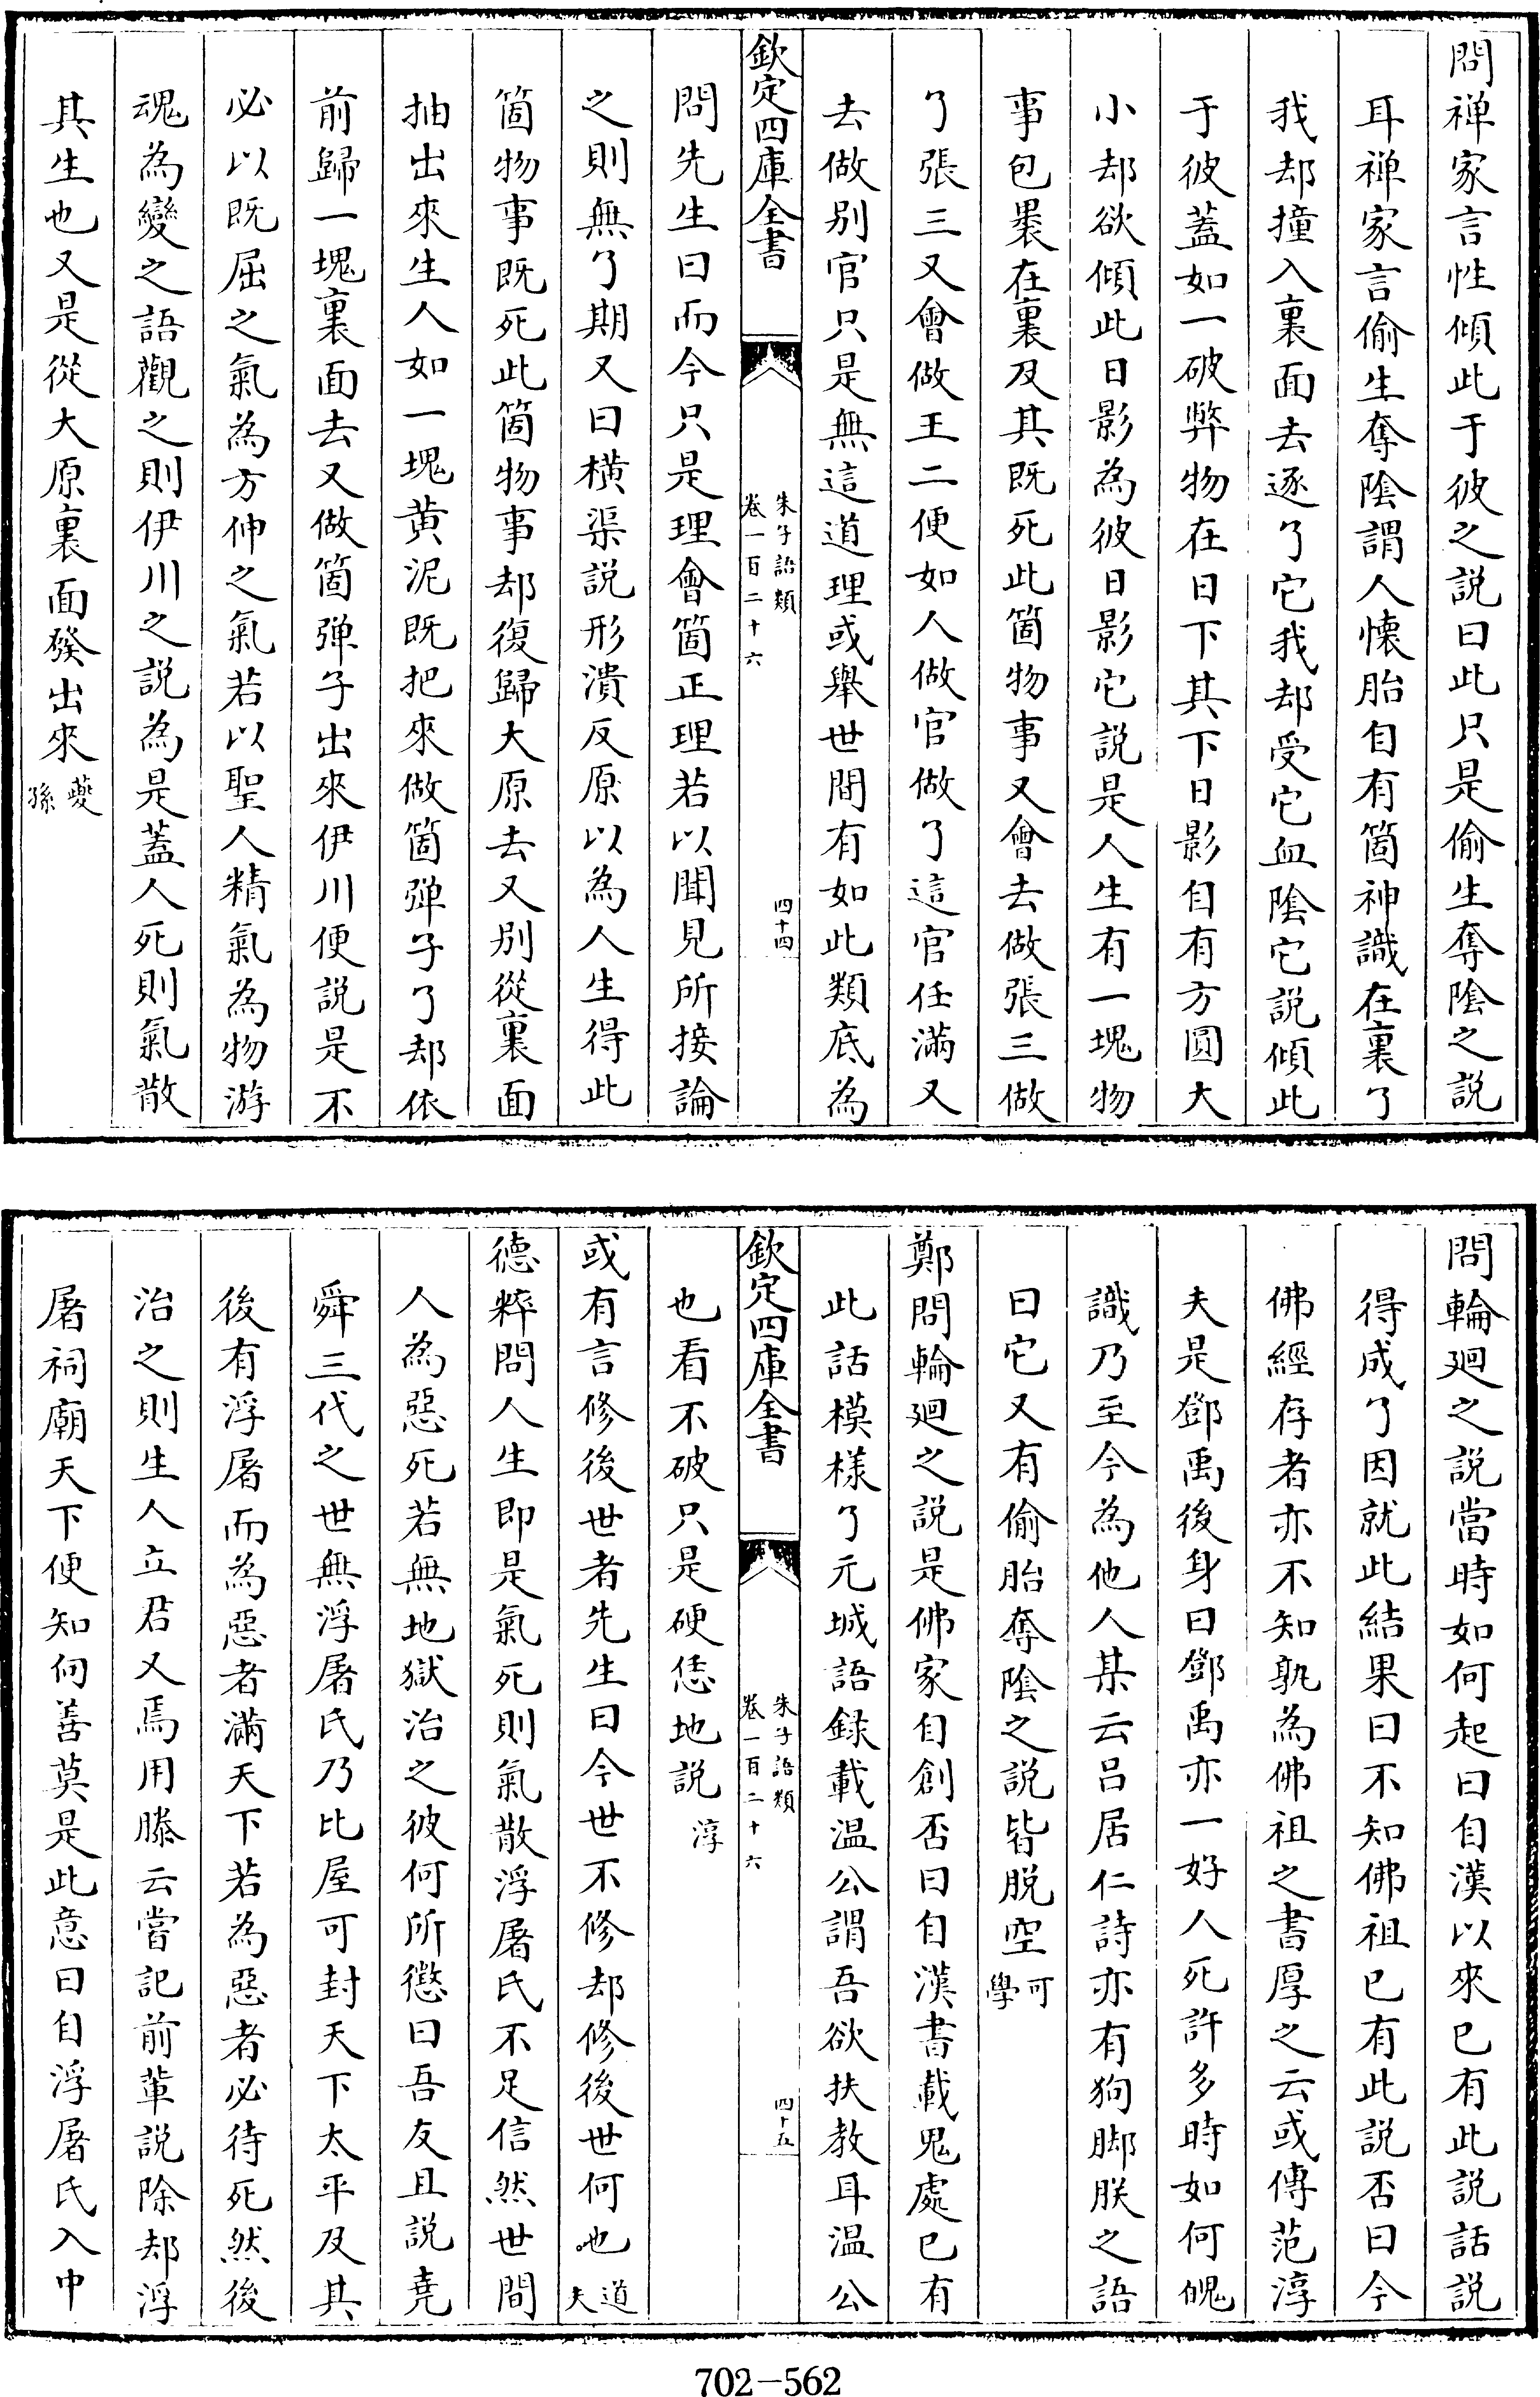 問禅家言性傾此于彼之説曰此只是偷生奪陰之説
耳禅家言偷生奪陰謂人懐胎自有箇神識在裏了
我却撞入裏面去逐了它我却受它血陰它説傾此
于彼蓋如一破弊物在日下其下日影自有方圓大
小却欲傾此日影為彼日影它説是人生有一塊物
事包褁在裏及其既死此箇物事又會去做張三做
了張三又會做王二便如人做官做了這官任滿又
去做别官只是無這道理或舉世間有如此類底為
欽定四庫全書
朱子語類
卷一百二十六
四十四
問先生曰而今只是理會箇正理若以聞見所接論
之則無了期又曰横渠説形潰反原以為人生得此
箇物事既死此箇物事却復歸大原去又别從裏面
抽出來生人如一塊黄泥既把來做箇弹子了却依
前歸一塊裏面去又做箇弹子出來伊川便説是不
必以既屈之氣為方伸之氣若以聖人精氣為物游
魂為變之語觀之則伊川之説為是蓋人死則氣散
其生也又是從大原裏面發出來 夔孫
問輪廻之説當時如何起曰自漢以來已有此説話説
得成了因就此結果曰不知佛祖已有此説否曰今
佛經存者亦不知孰為佛祖之書厚之云或傳范淳
夫是鄧禹後身曰鄧禹亦一好人死許多時如何魄
識乃至今為他人某云吕居仁詩亦有狗脚朕之語
曰它又有偷胎奪陰之説皆脱空 可學
鄭問輪廻之説是佛家自創否曰自漢書載鬼處已有
此話模樣了元城語録載温公謂吾欲扶教耳温公
欽定四庫全書
朱子語類
卷一百二十六
四十五
也看不破只是硬恁地説 淳
或有言修後世者先生曰今世不修却修後世何也 道夫
徳粹問人生即是氣死則氣散浮屠氏不足信然世間
人為惡死若無地獄治之彼何所懲曰吾友且説堯
舜三代之世無浮屠氏乃比屋可封天下太平及其
後有浮屠而為惡者滿天下若為惡者必待死然後
治之則生人立君又焉用滕云嘗記前輩説除却浮
屠祠廟天下便知向善莫是此意曰自浮屠氏入中
702-562